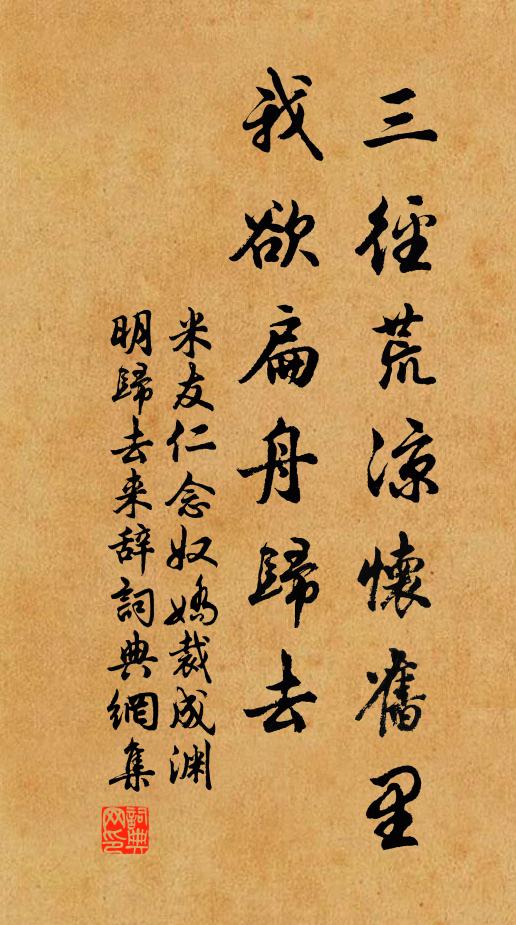 三徑荒涼懷舊里
我欲扁舟歸去
米友仁念奴嬌裁成渊
明歸去来辞詞典網集
詞典
网印